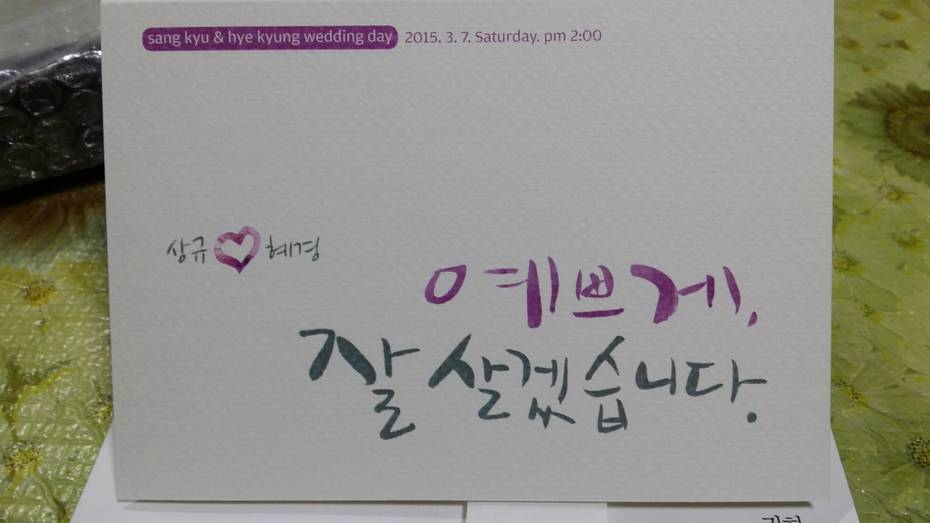 sang kyu & hye kyung wedding day 2015. 3. 7. Saturday. pm 2:00
상규 혜경
예쁘게,
잘 살겠습니다.